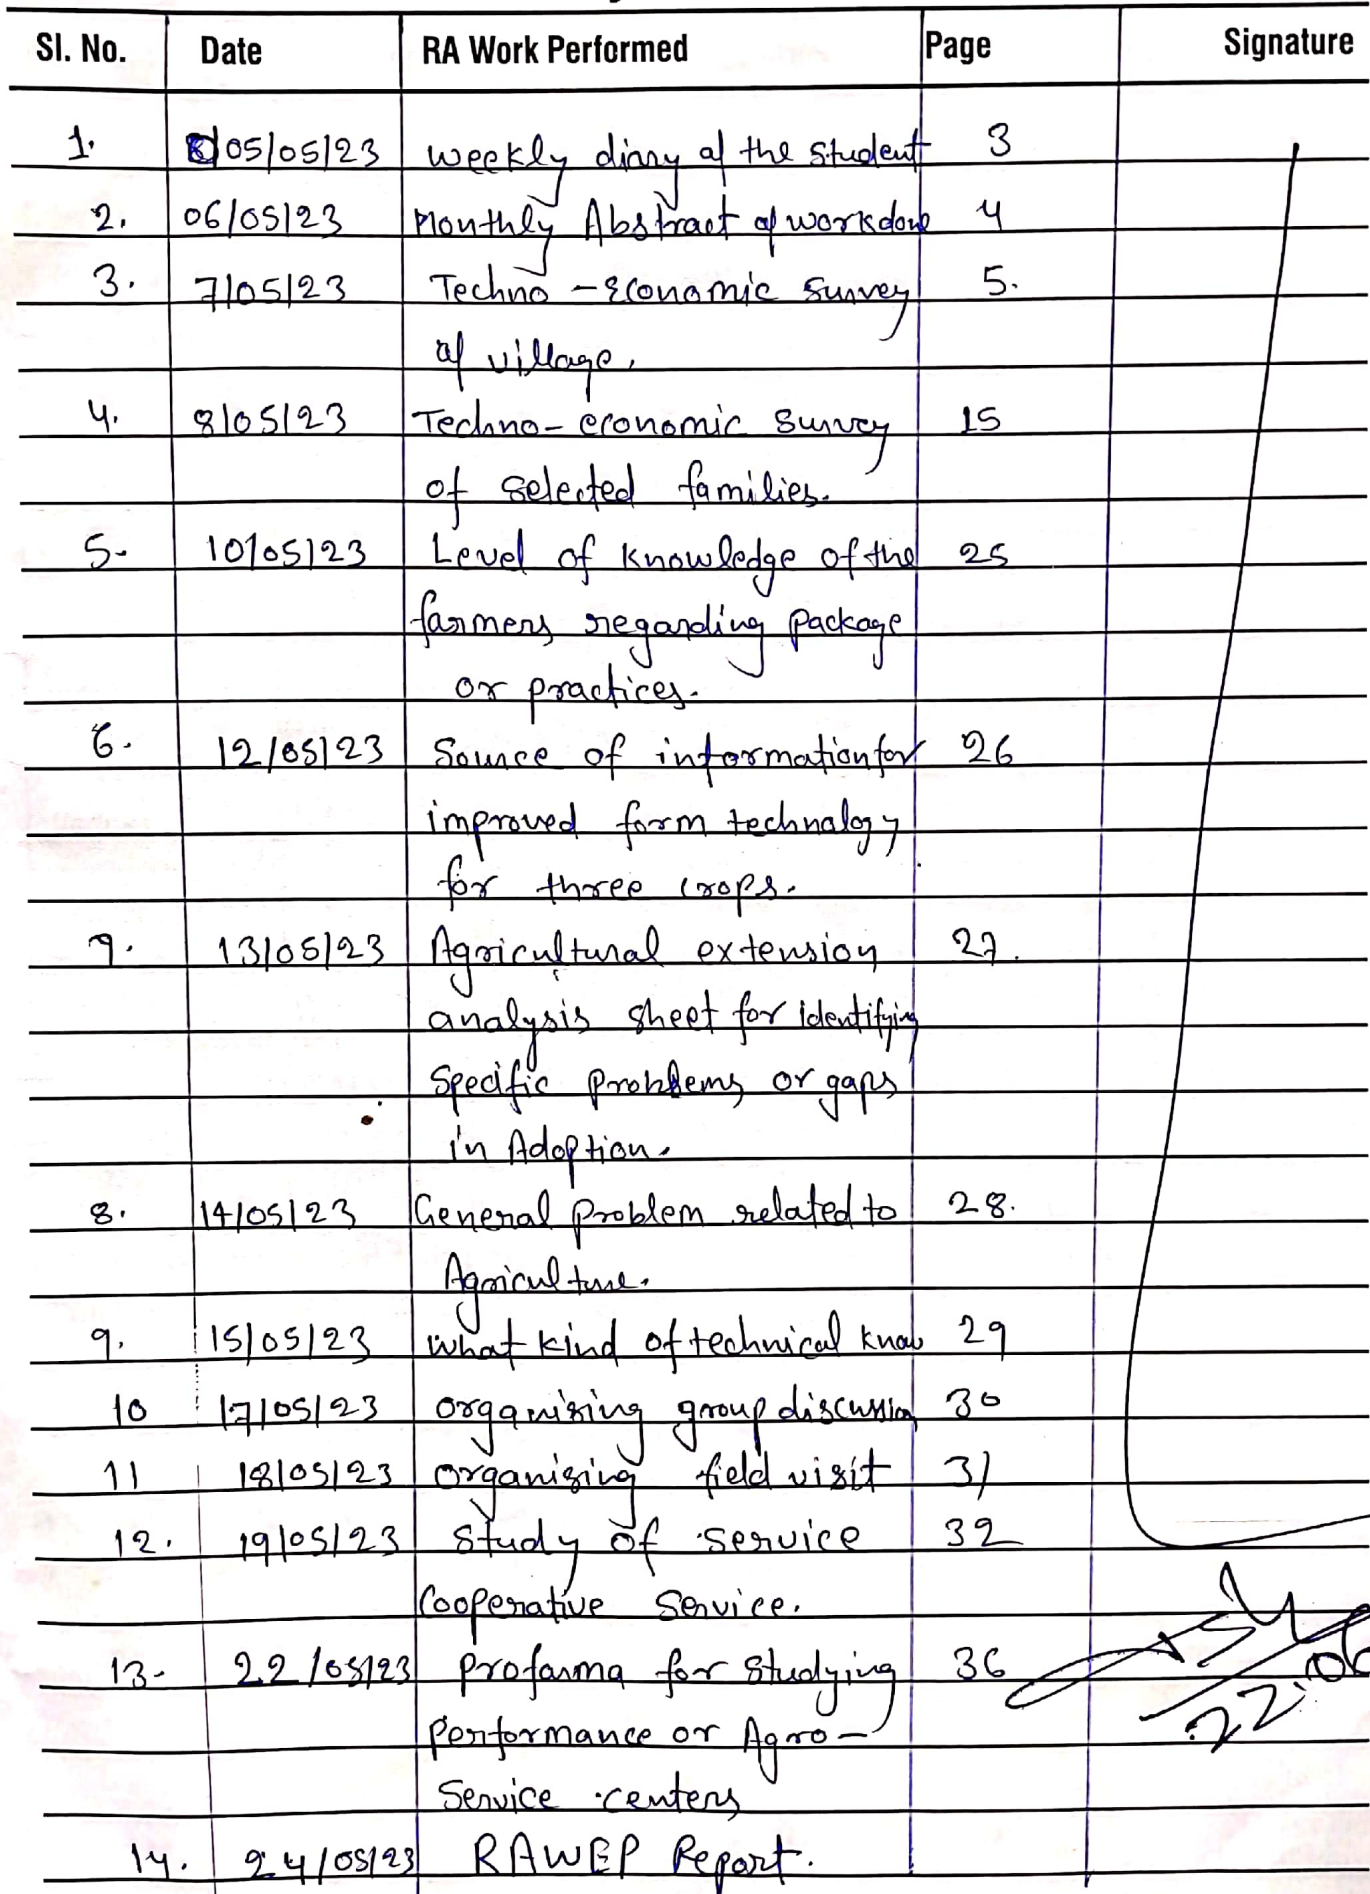 Sl. No. Date RA Work Performed Page Signature
1. 05/05/23 weekly diary of the student 3
2. 06/05/23 Monthly Abstract of workdone 4
3. 7/05/23 Techno - Economic survey 5.
of village.
4. 8/05/23 Techno - economic survey 15
of selected families.
5. 10/05/23 Level of knowledge of the 25
farmers regarding package
or practices.
6. 12/05/23 Source of information for 26
improved form technology
for three crops.
7. 13/05/23 Agricultural extension 27.
analysis sheet for identifying
specific problems or gaps
in Adoption.
8. 14/05/23 General problem related to 28.
Agriculture.
9. 15/05/23 what kind of technical know 29
10 17/05/23 organizing group discussion 30
11 18/05/23 organizing field visit 31
12. 19/05/23 study of service 32
Cooperative Service.
13. 22/05/23 profarma for studying 36
performance or Agro -
Service centers
14. 24/05/23 RAWEP Report.
22.06